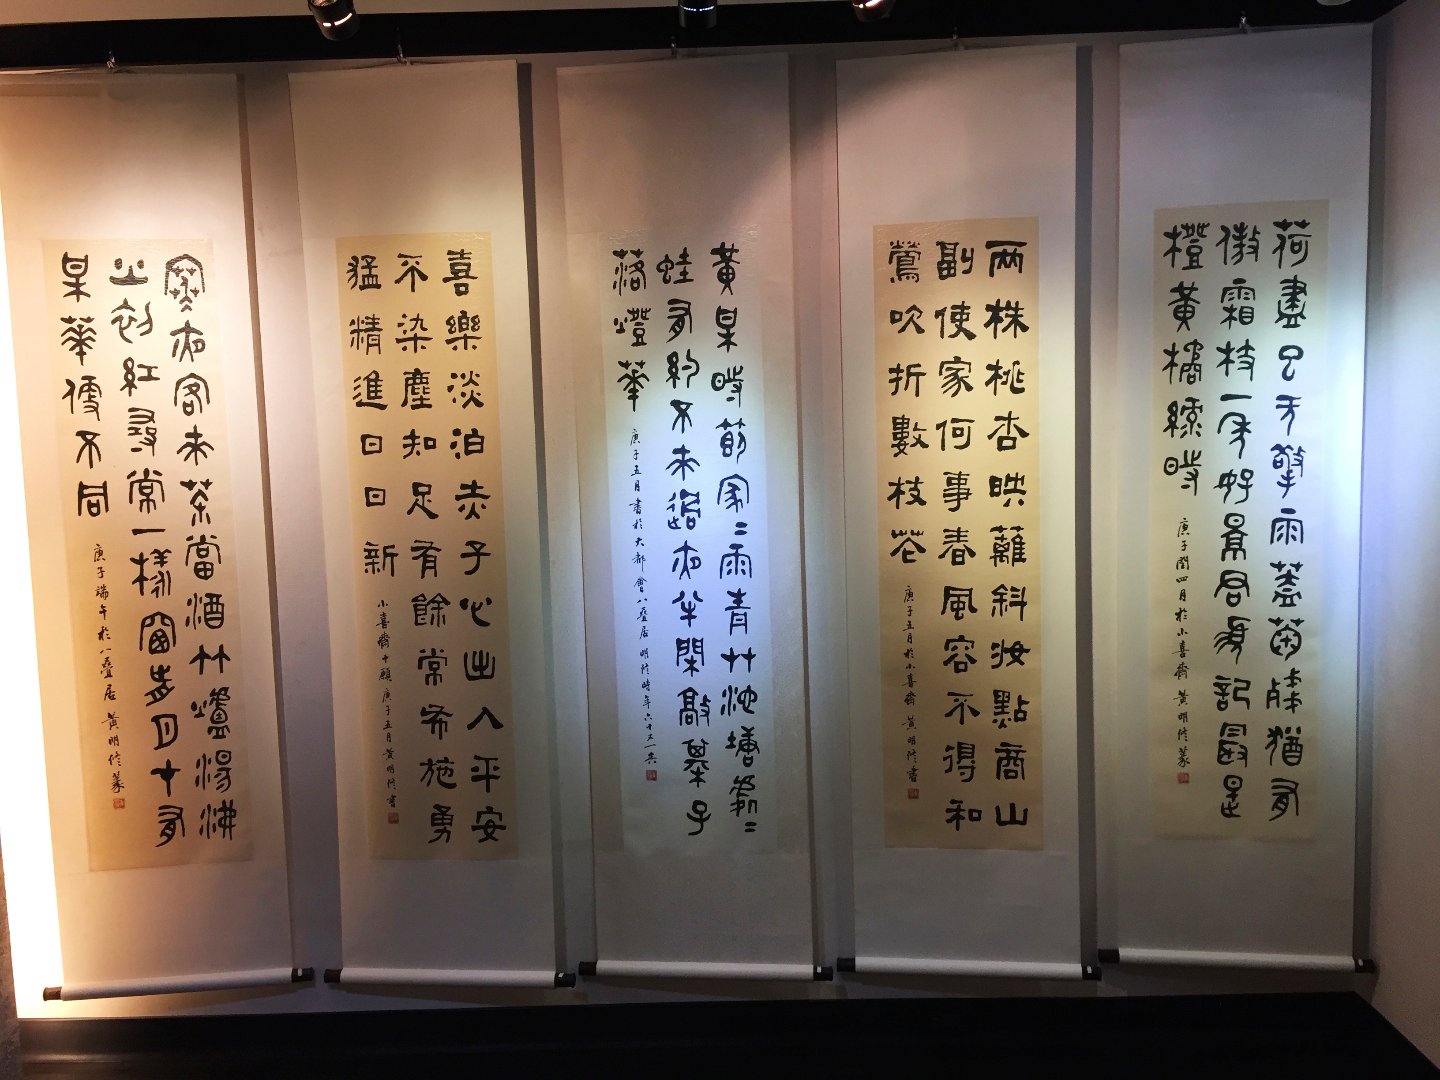 荷盡已无擎雨蓋菊殘猶有
傲霜枝一年好景君須記最是
橙黃橘綠時
庚子閏四月於小喜齋 黃明修篆
两株桃杏映蘺斜妝點商山
副使家何事春風容不得和
鶯吹折數枝花
庚子五月於小喜齋 黃明修書
黃某時節家〻雨青艸池塘處〻
蛙有約不来過夜半閑敲棊子
落燈華
庚子五月書於大都會八疊居 明修時年六十又一矣
喜樂淡泊赤子心出入平安
不染塵知足有餘常布施勇
猛精進日日新
小喜齋十願 庚子五月 黃明修書
寒夜客来茶當酒竹爐湯沸
火初紅尋常一樣窗前月才有
某華便不同
庚子端午於八疊居 黃明修篆